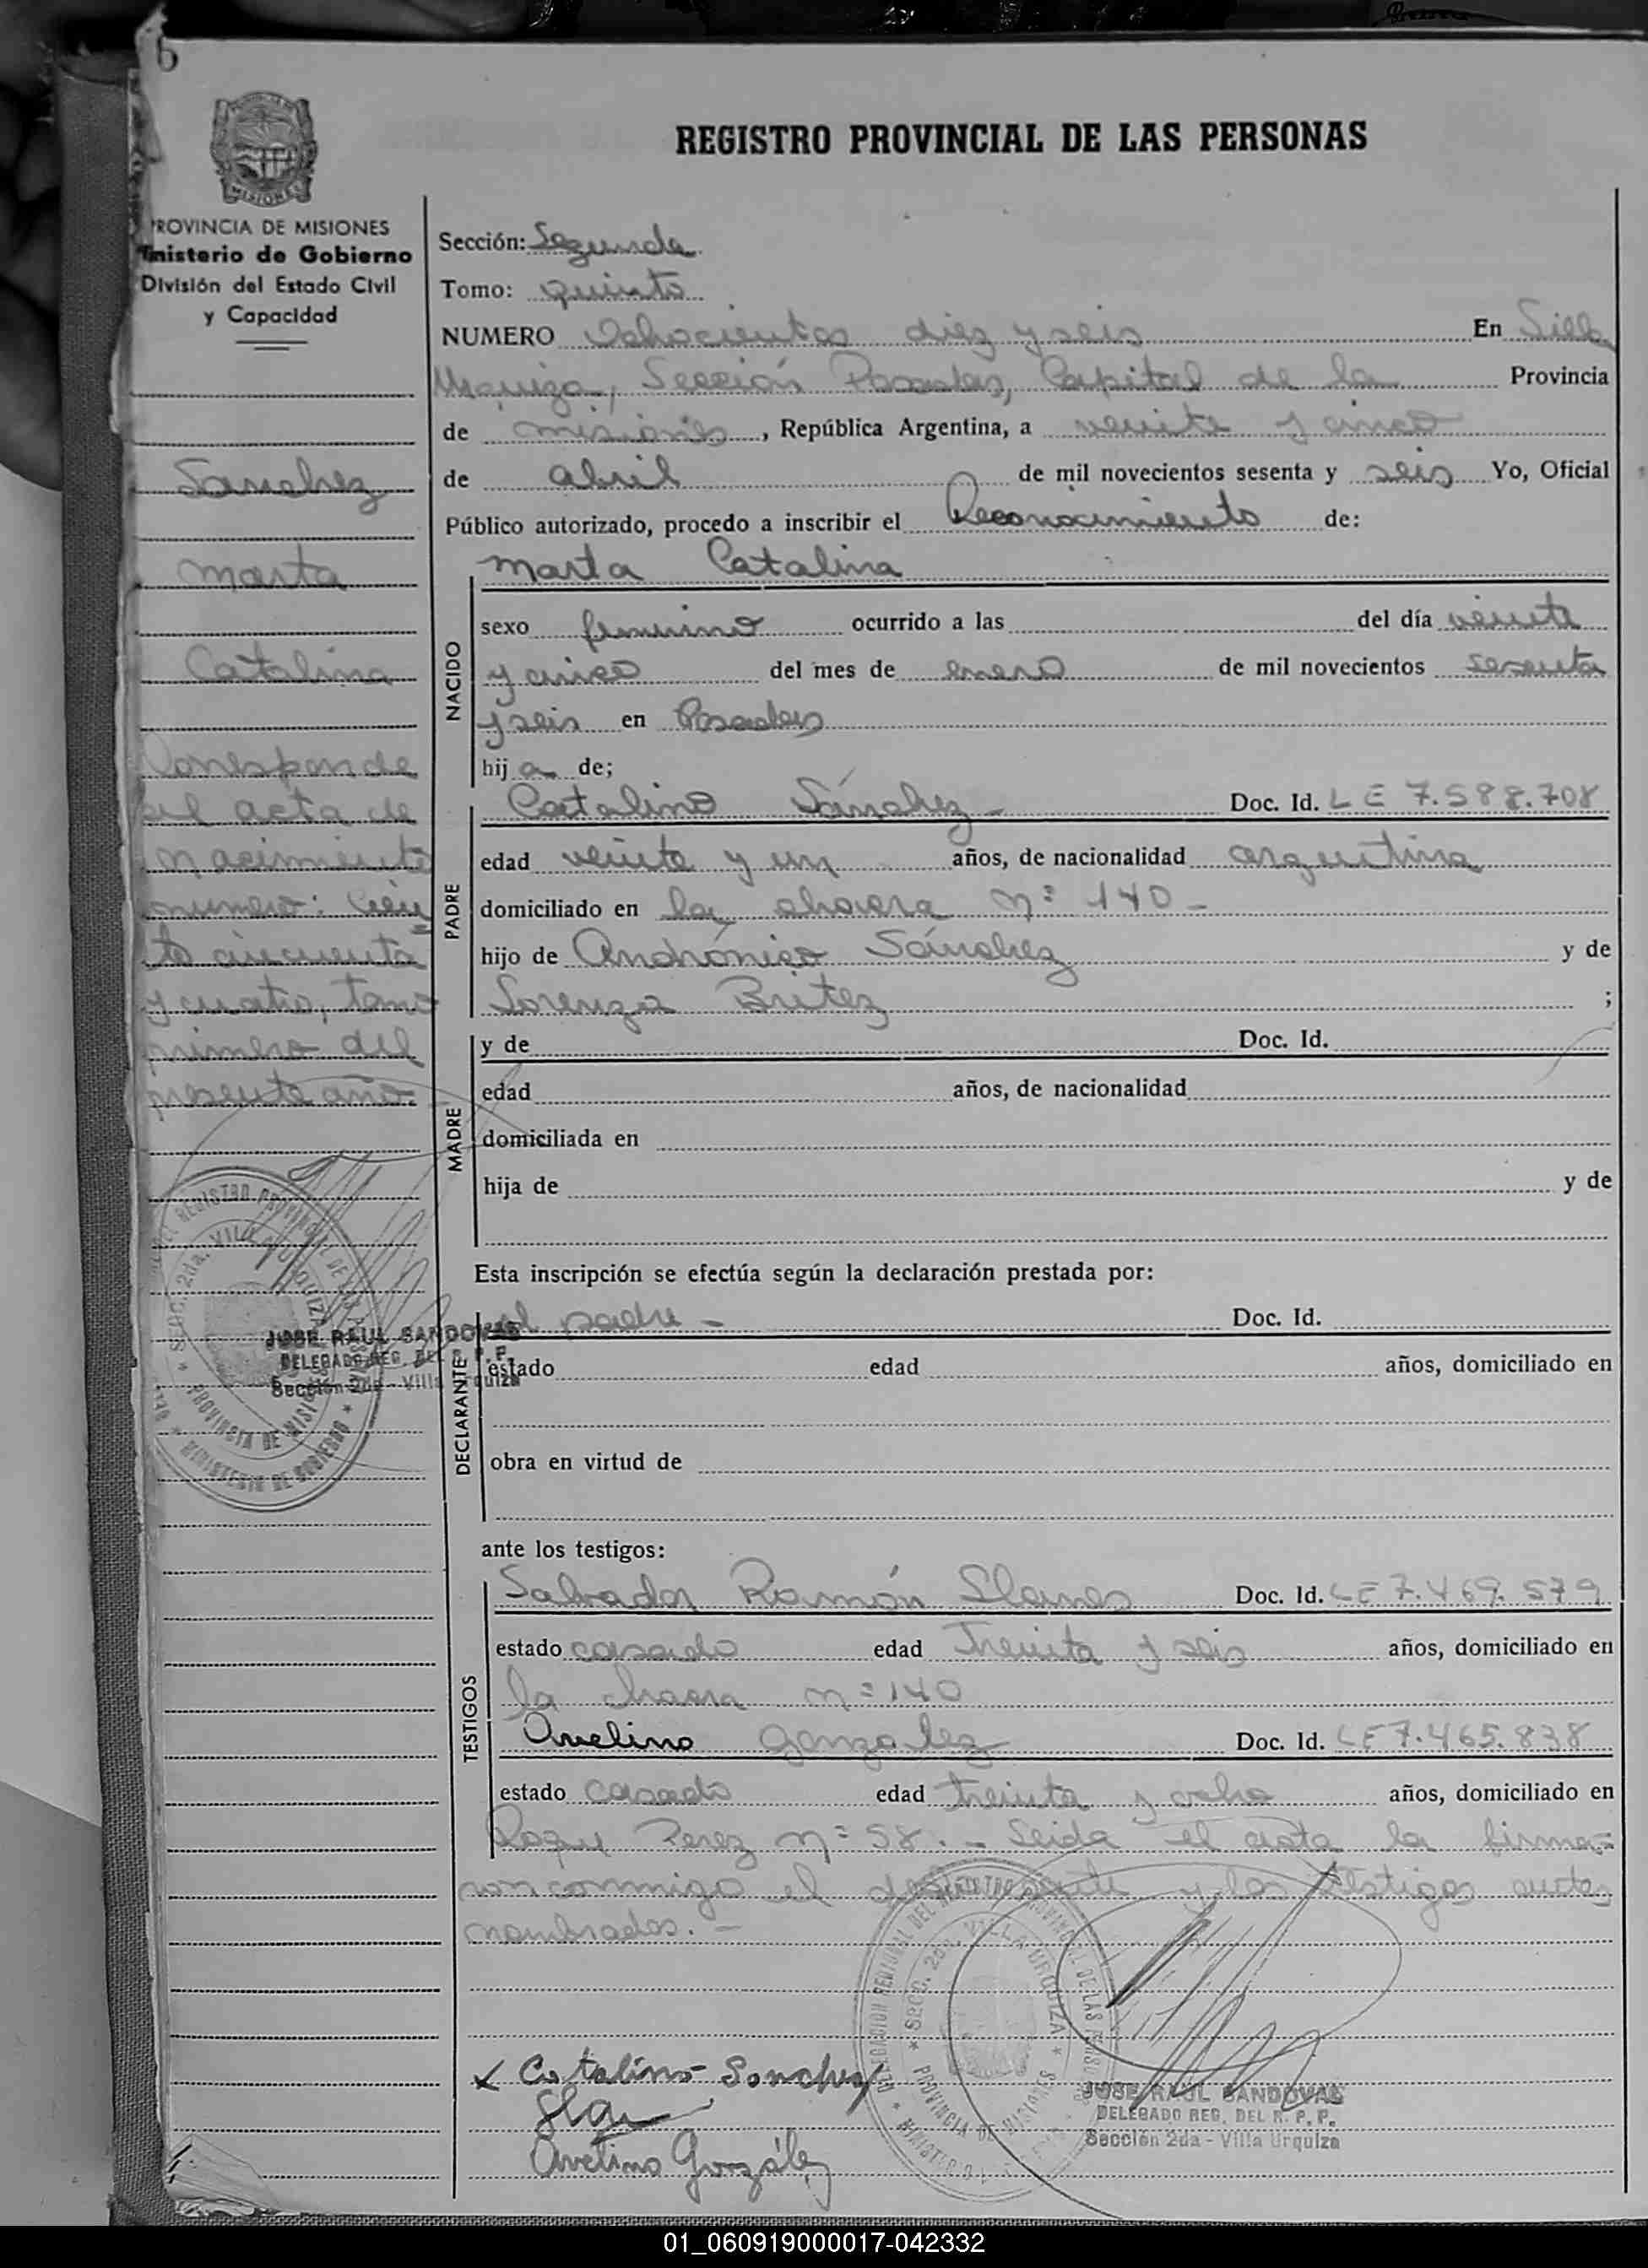 6
MISIONES
PROVINCIA DE MISIONES
Ministerio de Gobierno
División del Estado Civil
y Capacidad
Sanchez
Marta
Catalina
Coresponde
al acta de
nacimiento
numero: Cien
to cincuenta
y cuatro, tomo
primero del
presente año.
JOSE RAUL SANDOVAL
DELEGADO REG. DEL R. P. P.
Sección 2da - Villa Urquiza
REGISTRO PROVINCIAL DE LAS PERSONAS
Sección: Segunda
Tomo: quinto
NUMERO Ochocientos diez y seis En Villa
Urquiza, Sección Posadas, Capital de la Provincia
de misiones, República Argentina, a veinte y cinco
de abril de mil novecientos sesenta y seis Yo, Oficial
Público autorizado, procedo a inscribir el Reconocimiento de:
NACIDO
Marta Catalina
sexo femenino ocurrido a las del día veinte
y cinco del mes de enero de mil novecientos sesenta
y seis en Posadas
hija de;
PADRE
Catalino Sánchez - Doc. Id. LE 7.588.708
edad veinte y un años, de nacionalidad argentina
domiciliado en la chacra nº 140 -
hijo de Andrónico Sánchez y de
Lorenza Britez ;
MADRE
y de Doc. Id.
edad años, de nacionalidad
domiciliada en
hija de y de
Esta inscripción se efectúa según la declaración prestada por:
DECLARANTE
el padre - Doc. Id.
estado edad años, domiciliado en
obra en virtud de
ante los testigos:
TESTIGOS
Salvador Ramón Llanes Doc. Id. LE 7.469.579
estado casado edad Treinta y seis años, domiciliado en
la chacra nº 140
Avelino Gonzalez Doc. Id. LE 7.465.838
estado casado edad treinta y ocho años, domiciliado en
Roque Perez nº 58. - Leida el acta la firma=
ron conmigo el y los testigos antes
nombrados. -
DELEGACION REGIONAL DEL REGISTRO PROVINCIAL DE LAS PERSONAS
SECC. 2da. VILLA URQUIZA
PROVINCIA DE MISIONES
MINISTERIO DE GOBIERNO
x Catalino Sanchez
Avelino González
JOSE RAUL SANDOVAL
DELEGADO REG. DEL R. P. P.
Sección 2da - Villa Urquiza
01_060919000017-042332